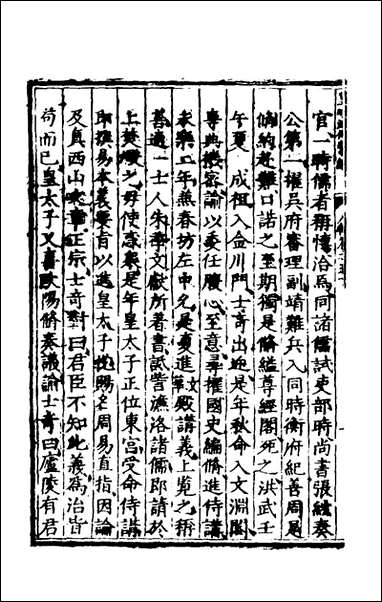 官一時儒者翔懷洽焉同諸儒試吏部時尚書張紞奏
公第一擢吳府審理副靖難兵入同時衡府紀善周是
脩約赴難口諾之至期獨是脩縊尊經閣死之洪武壬
午夏 成祖入金川門士奇出迎是年秋命入文淵閣
專典機密諭以委任腹心至意尋擢國史編脩進侍講
永樂二年兼春坊左中允是夏進文華殿講義上覽之稱
善適一士人朱季文獻所著書詆訾濂洛諸儒即請於
上焚燬之毋使惑衆是年皇太子正位東宮受命侍講
即撰易本義要旨以進皇太子悅賜名周易直指因論
及真西山文章正宗士奇對曰君臣不知此義為治皆
苟而已皇太子又喜歐陽脩奏議諭士奇曰廬陵有君